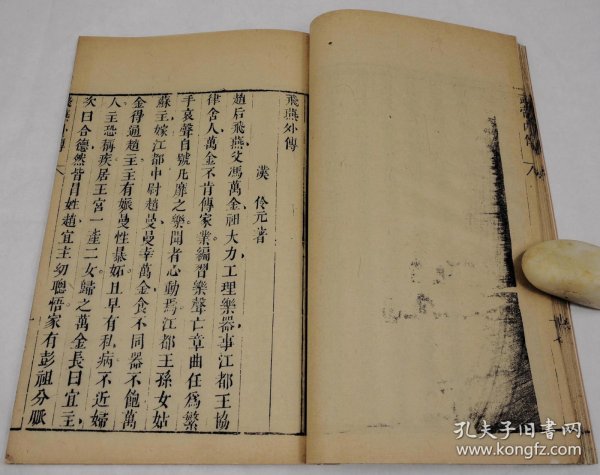 飛燕外傳
漢 伶元著
趙后飛燕父馮萬金祖大力工理樂器事江都王協
律舍人萬金不肯傳家業編習樂聲亡章曲任爲繁
手哀聲自號凡靡之樂聞者心動焉江都王孫女姑
蘇主嫁江都中尉趙曼曼幸萬金食不同器不飽萬
金得通趙主主有娠曼性暴妬且早有私病不近婦
人主恐稱疾居王宮一產二女歸之萬金長曰宜主
次曰合德然皆冒姓趙宜主幼聰悟家有彭祖分脈
飛燕外傳
八
孔夫子旧书网
www.kongfz.com